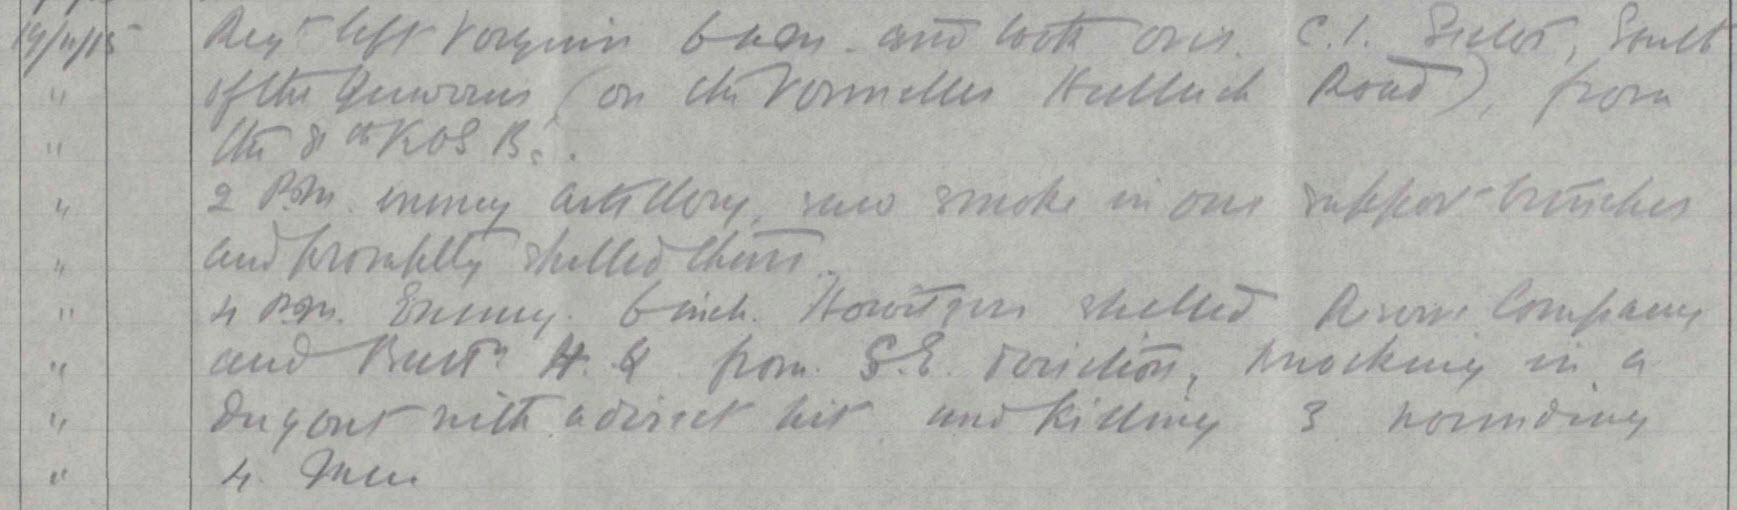 19/11/15 Regt left Verquin 6 a.m. and took over C.1. Sector, South
" of the Quarries (on the Vermelles Hulluch Road), from
" the 8th KOSB.
" 2 P.M. enemy artillery, saw smoke in our support trenches
" and promptly shelled them.
" 4 P.M. Enemy 6 inch. Howitzers shelled Reserve Company
" and Battn H.Q from. S.E. direction, knocking in a
" dugout with a direct hit and killing 3 wounding
" 4. Men